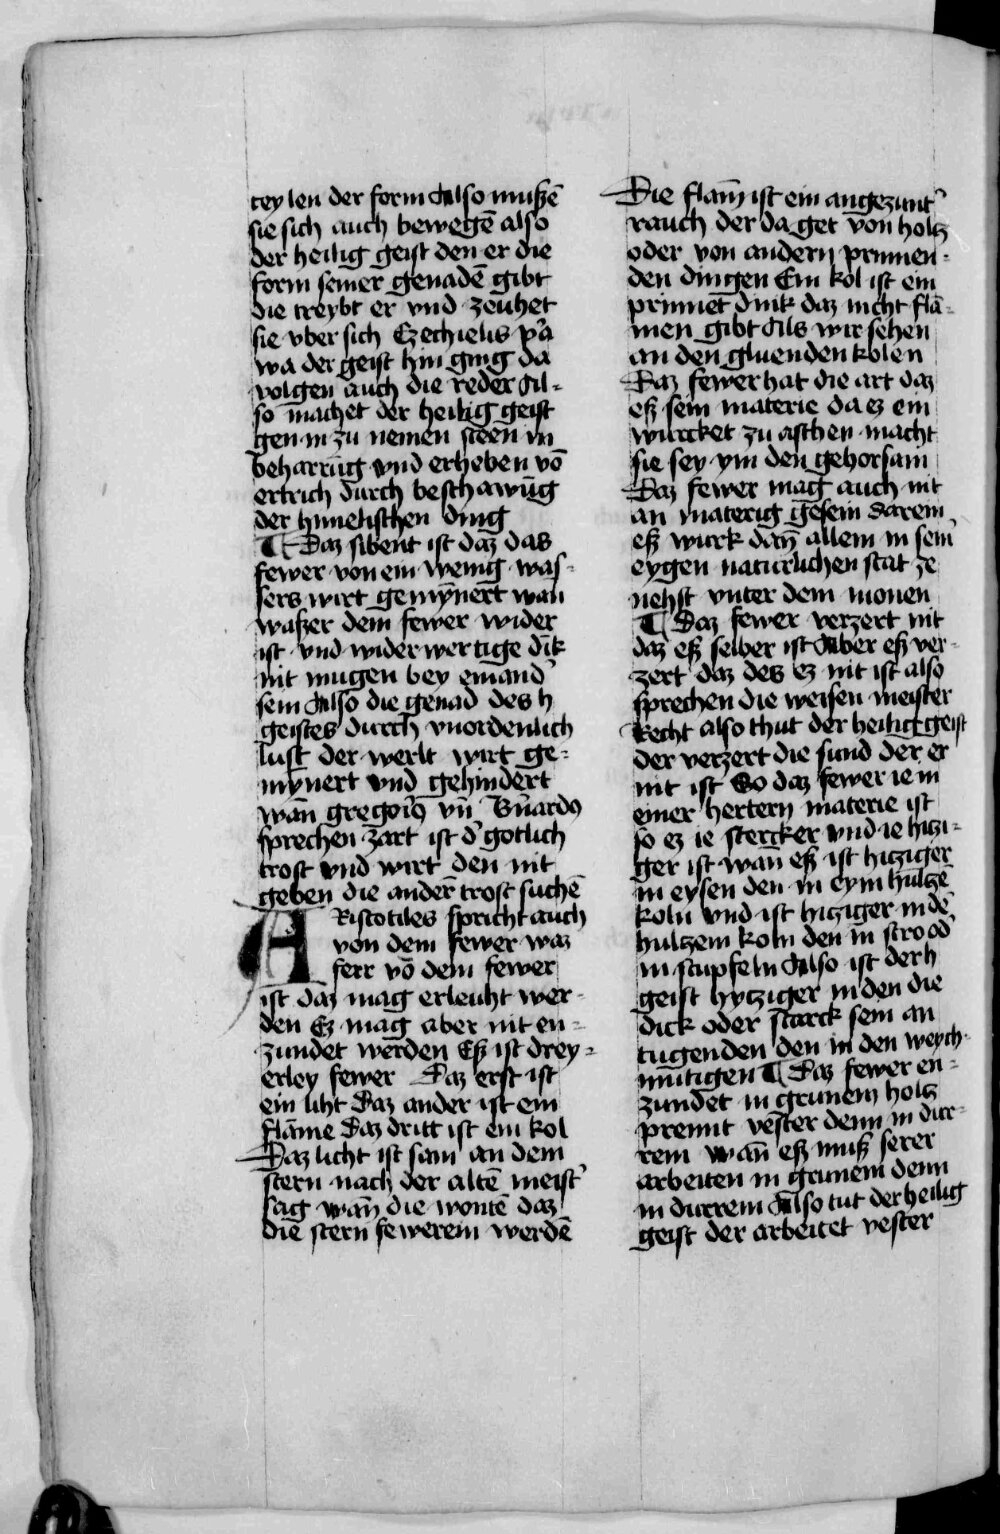 teylen der form Also mußē
sie sich auch bewegē also
der heilig geist den er die
form seiner genadē gibt
die treybt er vnd zeuhet
sie vber sich Ezechielis p'a
wa der geist hin ging da
volgen auch die reder Al-
so machet der heilig geist
gen in zu nemen steen in
beharrūg vnd erheben vō
ertrich durch beschawūg
der himelischen ding
¶ Daz sibent ist daz das
fewer von ein wenig was-
sers wirt gemynert wan
waßer dem fewer wider
ist vnd wider wertige dīk
nit mugen bey einand'
sein Also die genad des h
geistes durch vnordenlich
lust der werlt wirt ge-
mynert vnd gehindert
wān gregori9 vn̄ B'nard9
sprechen zart ist d' gotlich
trost vnd wirt den nit
geben die ander trost suchē
ARistotiles spricht auch
von dem fewer waz
ferr vō dem fewer
ist daz mag erleuht wer-
den Ez mag aber nit en-
zundet werden Eß ist drey-
erley fewer Daz erst ist
ein liht Daz ander ist ein
flāme Daz dritt ist ein kol
Daz licht ist sam an dem
stern nach der altē meist'
sag wān die wontē daz
die stern fewerein werdē
Die flam̄ ist ein angezunt'
rauch der da get von holtz
oder von andern prinnen-
den dingen Ein kol ist ein
prinnet dink daz nicht flā-
men gibt Als wir sehen
an den gluenden kolen
Daz fewer hat die art daz
eß sein materie da ez ein
wurcket zu aschen macht
sie sey ym den gehorsam
Daz fewer mag auch nit
an materig gesein darein
eß wurk dan̄ allein in sein'
eygen naturlichen stat ze
nehst vnter dem monen
¶ Daz fewer verzert nit
daz eß selber ist Aber eß ver-
zert daz des ez nit ist also
sprechen die weisen meister
Recht also thut der heilig geist
der verzert die sund der er
nit ist So daz fewer ie in
einer hertern materie ist
so ez ie stercker vnd ie hitzi-
ger ist wan̄ eß ist hitziger
in eysen den in eym hultzē
koln vnd ist hitziger in dē
hultzein koln den in stro od'
in stupfeln Also ist der h
geist hytziger in den die
dick oder starck sein an
tugenden den in den weych-
mutigen ¶ Daz fewer en-
zundet in grunem holtz
prennt vester denn in dur-
rem wan̄ eß muß serer
arbeiten in grunem denn
in durrem Also tut der heilig
geist der arbeitet vester